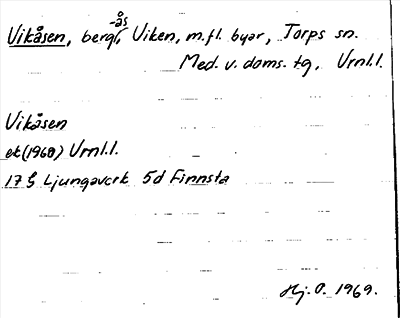 Vikåsen, bergås, Viken, m.fl. byar, Torps sn.
Med. v. doms. tg, Vrnl.l.
Vikåsen
ek(1960) Vrnl.l.
17 G Ljungaverk 5d Finnsta
Hj. O. 1969.